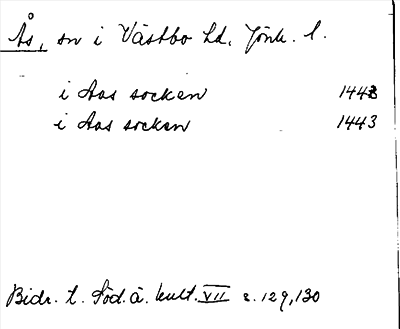 Ås, sn i Västbo hd, Jönk. l.
i Aas socken 1443
i Aas socken 1443
Bidr. t. Söd. å. kult. VII s. 129, 130